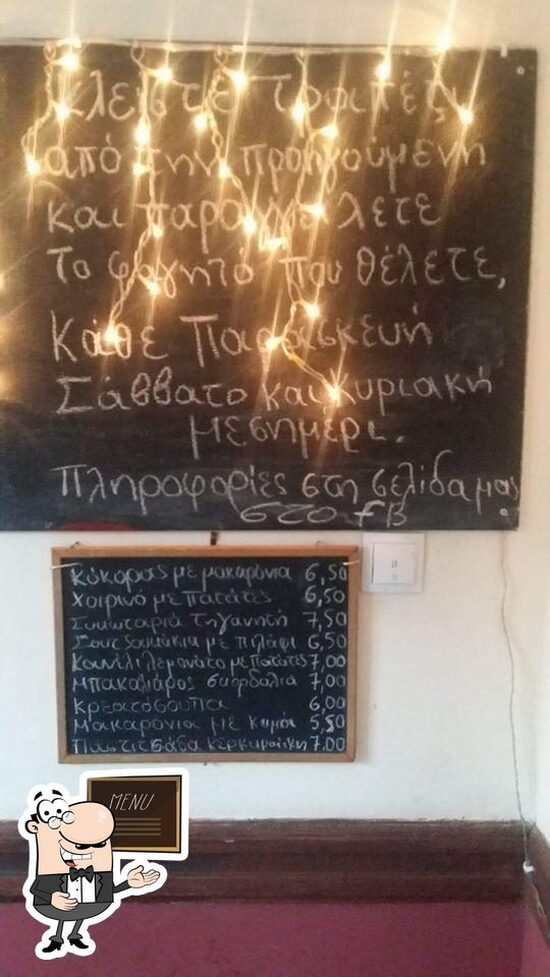 Κλείστε Τραπέζι
από την προηγούμενη
και παραγγείλετε
Το φαγητό που θέλετε,
Κάθε Παρασκευή
Σάββατο και Κυριακή
μεσημέρι.
Πληροφορίες στη σελίδα μας
στο fB
Κόκορας με μακαρόνια 6,50
Χοιρινό με πατάτες 6,50
Συκωταριά Τηγανητή 7,50
Σουτζουκάκια με πιλάφι 6,50
Κουνέλι λεμονάτο με πατάτες 7,00
Μπακαλιάρος σκορδαλιά 7,00
Κρεατόσουπα 6,00
Μακαρόνια με κιμά 5,50
Παστιτσάδα κερκυραϊκη 7.00
MENU